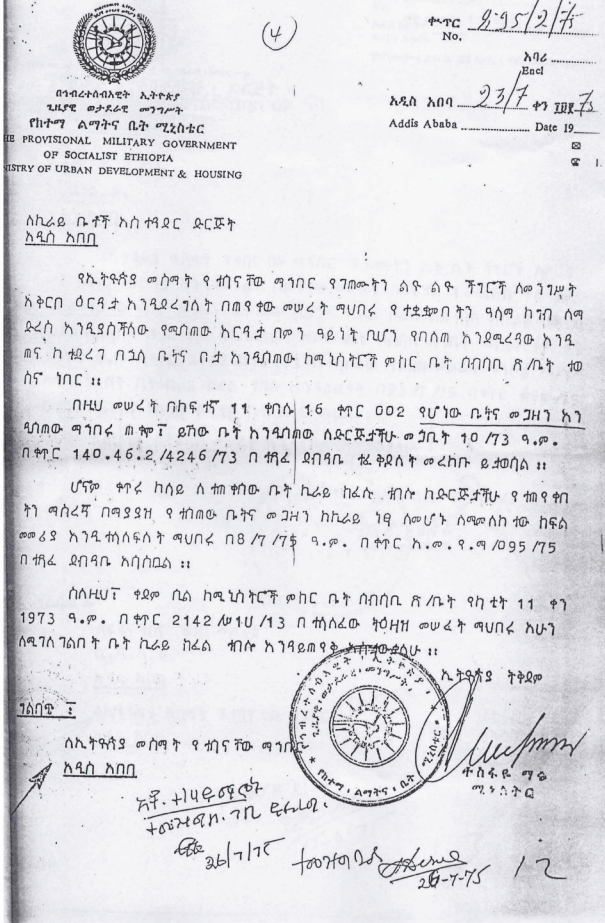 (4)
ቀጥር 895/2/75
No.
አባሪ
Encl
አዲስ አበባ 23/7 ቀን ፲፱፻ 75
Addis Ababa Date 19
በኅብረተሰብአዊት ኢትዮጵያ
ጊዜያዊ ወታደራዊ መንግሥት
የከተማ ልማትና ቤት ሚኒስቴር
HE PROVISIONAL MILITARY GOVERNMENT
OF SOCIALIST ETHIOPIA
NISTRY OF URBAN DEVELOPMENT & HOUSING
ለኪራይ ቤቶች አስተዳደር ድርጅት
አዲስ አበባ
የኢትዮጵያ መስማት የተሳናቸው ማኅበር የገጠሙትን ልዩ ልዩ ችግሮች ለመንግሥት
አቅርቦ ዕርዳታ እንዲደረግለት በጠየቀው መሠረት ማህበሩ የተቋቋመበትን ዓላማ ከግብ ለማ
ድረስ እንዲያስችለው የሚሰጠው እርዳታ በምን ዓይነት ቢሆን የበለጠ እንደሚረዳው እንዲ
ጠና ከተደረገ በኋላ ቤትና ቦታ እንዲሰጠው ከሚኒስትሮች ምክር ቤት ሰብሳቢ ጽ/ቤት ተወ
ስኖ ነበር ።
በዚህ መሠረት በከፍተኛ 11 ቀበሌ 16 ቀጥር 002 የሆነው ቤትና መጋዘን እን
ዲሰጠው ማኅበሩ ጠቁሞ፤ ይኸው ቤት እንዲሰጠው ለድርጅታችሁ መጋቢት 10/73 ዓ.ም.
በቀጥር 140.46.2/4246/73 በተጻፈ ደብዳቤ ተፈቅዶለት መረከቡ ይታወሳል ።
ሆኖም ቀጥሩ ከላይ ለተጠቀሰው ቤት ኪራይ ከፈሉ ተብሎ ከድርጅታችሁ የተጠየቀበ
ትን ማስረጃ በማያያዝ የተሰጠው ቤትና መጋዘን ከኪራይ ነፃ ለመሆኑ ለማመልከተው ክፍል
መመሪያ እንዲተላለፍለት ማህበሩ በ8/7/75 ዓ.ም. በቀጥር ኢ.መ.የ.ማ/095/75
በተጻፈ ደብዳቤ አሳስቧል ።
ስለዚህ፤ ቀደም ሲል ከሚኒስትሮች ምክር ቤት ሰብሳቢ ጽ/ቤት የካቲት 11 ቀን
1973 ዓ.ም. በቀጥር 2142/ሥ1ሀ/13 በተላለፈው ትዕዛዝ መሠረት ማህበሩ አሁን
ለሚገለገልበት ቤት ኪራይ ክፈል ተብሎ እንዳይጠየቅ
ኢትዮጵያ ትቅደም
ግልባጭ ፤
ለኢትዮጵያ መስማት የተሳናቸው ማኅበር
አዲስ አበባ
ተስፋዬ ማሩ
ሚኒስትር
26/7/75
26-7-75
12